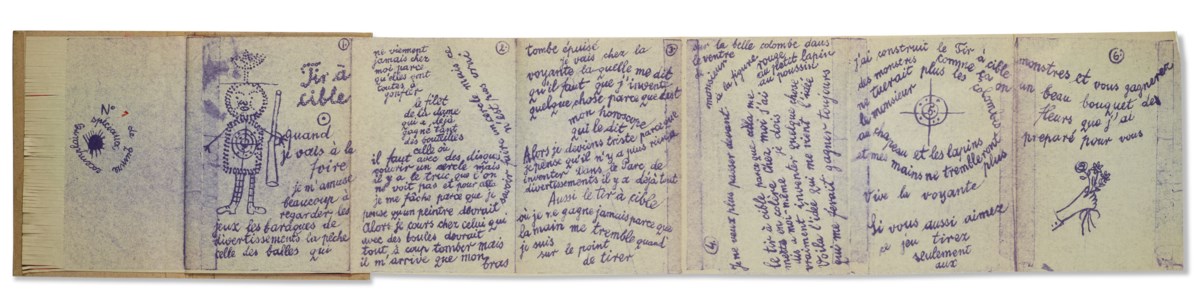 N°
1)
Tir à
cible
quand
je vais à la
foire
je m'amuse
beaucoup à
regarder les
jeux les baraques de
divertissements la pêche
celle des balles qui
2)
ne viennent
jamais chez
moi parce
qu'elles vont
toutes à
le filot
de la dame
qui a déjà
gagné tant
des bouteilles
celle où
il faut avec des disques
couvrir un cercle mais
il y a le truc que l'on
ne voit pas et pour cela
je me fâche parce que je
pense qu'un peintre devrait
Alors je cours chez celui qui
avec des boules devrait
tout à coup tomber mais
il m'arrive que mon
bras
3)
tombe épuisé
je vais chez la
voyante laquelle me dit
qu'il faut que j'invente
quelque chose parce que c'est
mon horoscope
qui le dit
Alors je deviens triste parce que
je pense qu'il n'y a plus rien à
inventer dans le Parc de
divertissements il y a déjà tout
Aussi le tir à cible
où je ne gagne jamais parce que
la main me tremble quand
je suis sur le point
de tirer
4)
sur la belle colombe dans
le ventre
monsieur
à la figure rouge
au petit lapin
au poussin
je ne veux plus passer devant
le tir à cible parce que cela me
met en colère chez moi j'ai
dis à moi-même je dois
vraiment inventer quelque chose
Voilà l'idée qui me vient l'idée
qui me ferait gagner toujours
j'ai construit le Tir à cible
des monstres comme ça on
ne tuerait plus les colombes
le monsieur
au chapeau et les lapins
et mes mains ne trembleront plus
Vive la voyante
Si vous aussi aimez
ce jeu tirez
seulement
aux
6)
monstres et vous gagnerez
un beau bouquet des
fleurs que j'ai
preparé pour vous